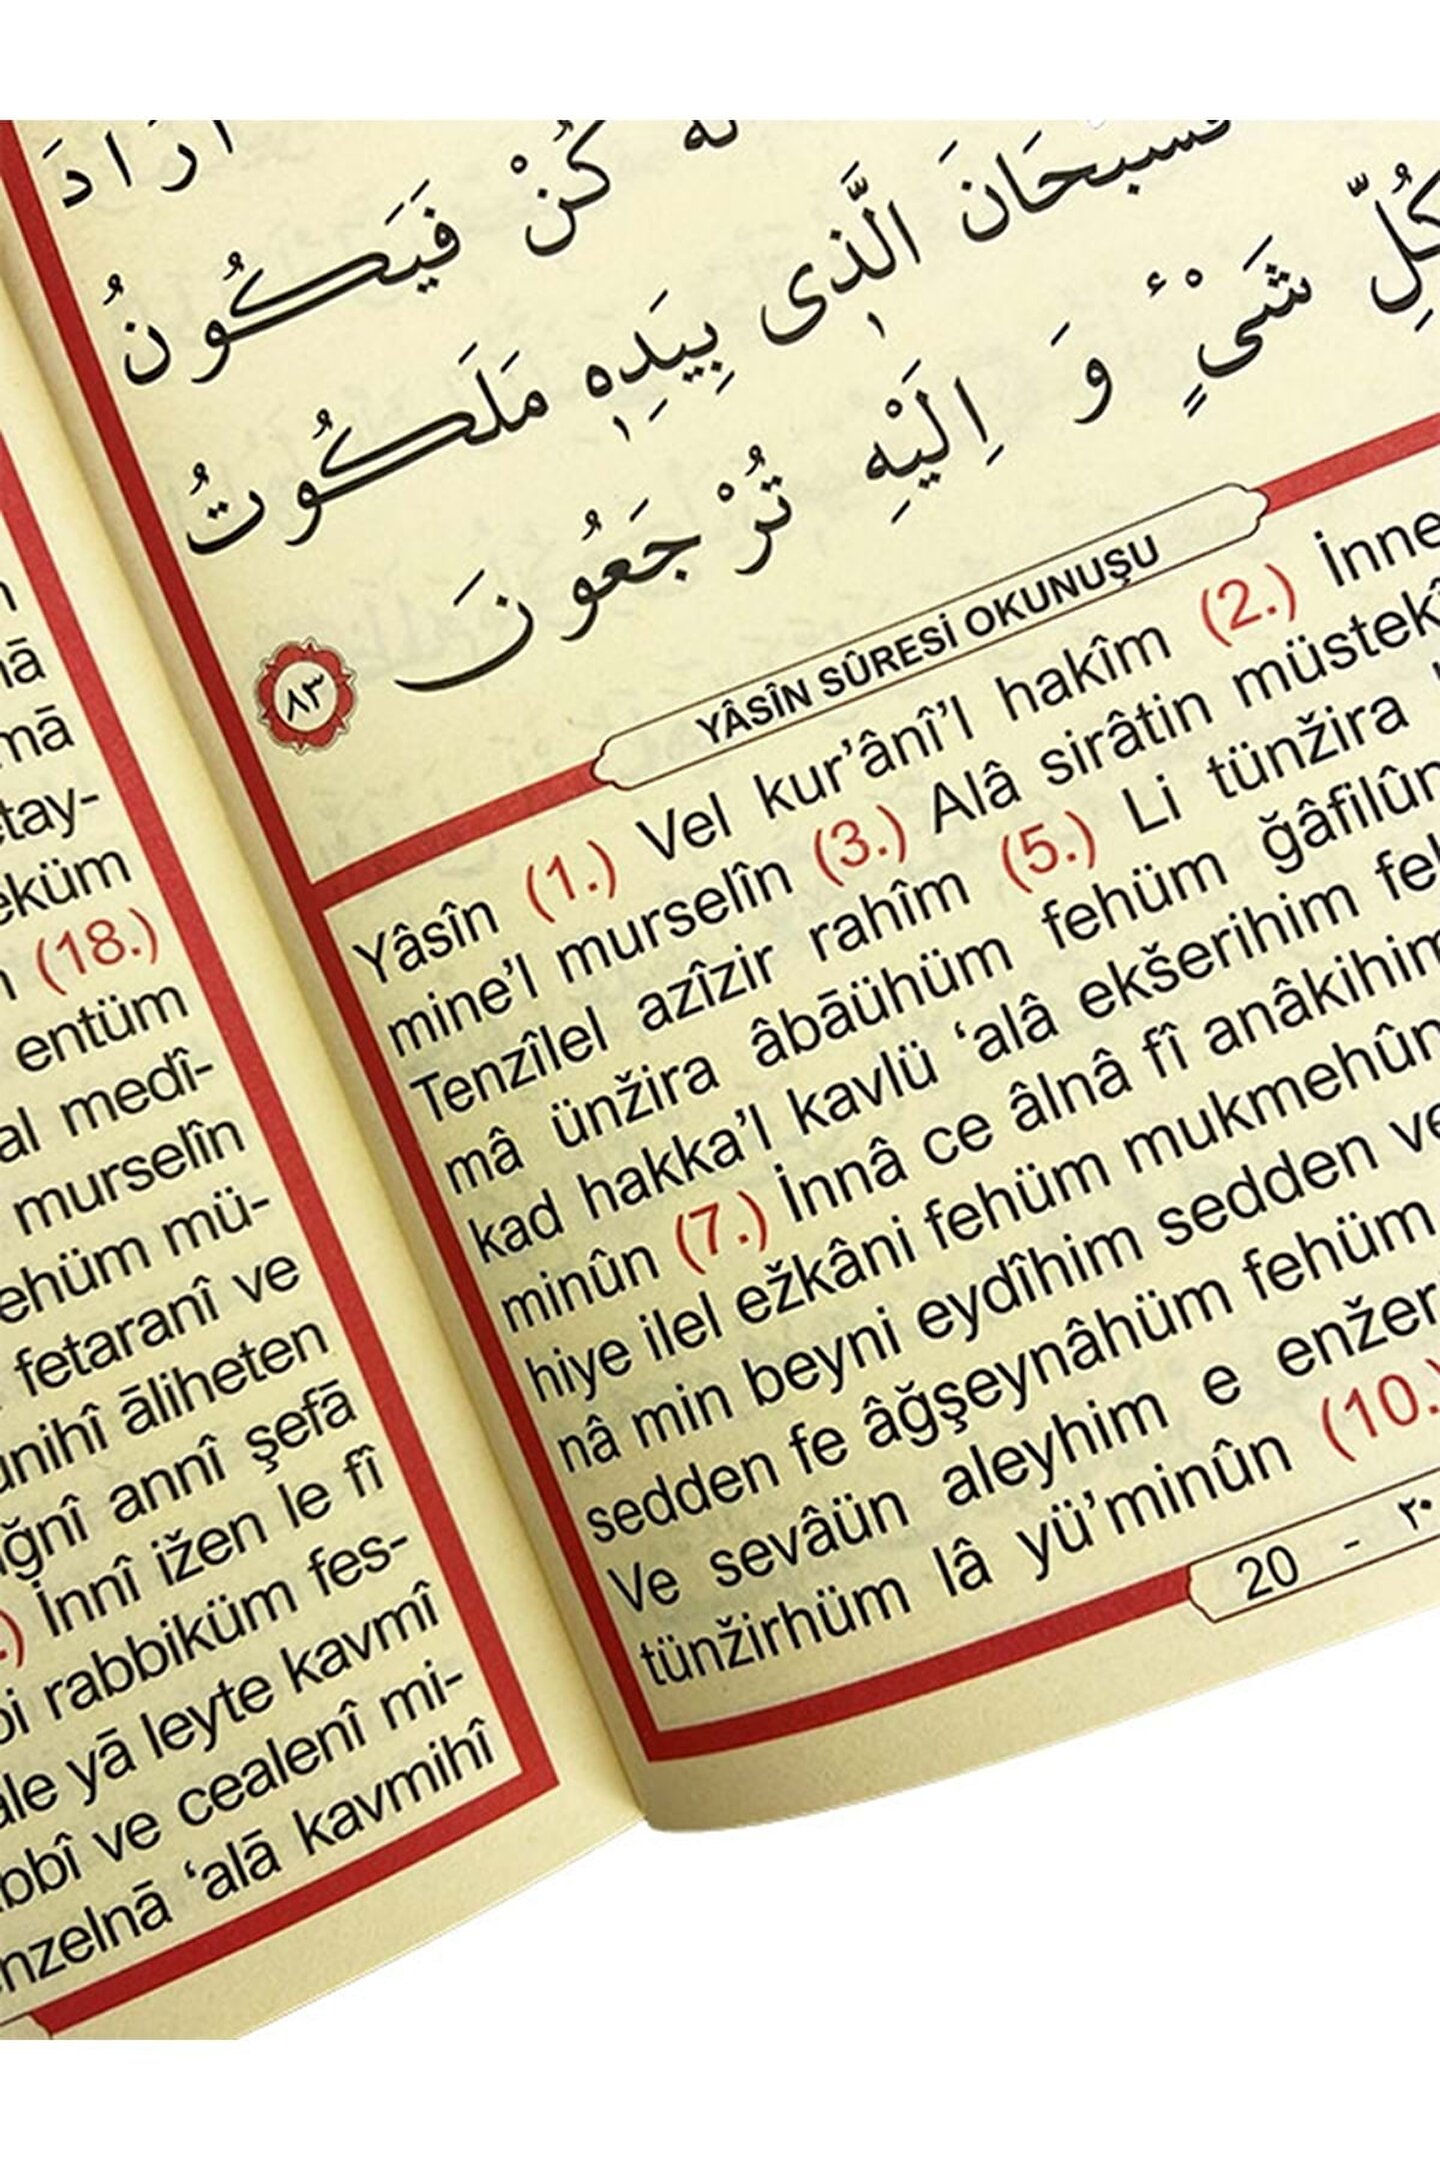 اَرَادَ
كُنْ فَيَكُونُ
الَّذٖى بِيَدِهٖ مَلَكُوتُ
كُلِّ شَىْءٍ وَ اِلَيْهِ تُرْجَعُونَ
٨٣
YÂSÎN SÛRESİ OKUNUŞU
Yâsîn (1.) Vel kur’ânî’l hakîm (2.) İnne
mine’l murselîn (3.) Alâ sirâtin müstekî
Tenzîlel azîzir rahîm (5.) Li tünžira
mâ ünžira âbāühüm fehüm ğâfilûn
kad hakka’l kavlü ‘alâ ekšerihim feh
minûn (7.) İnnâ ce âlnâ fî anâkihim
hiye ilel ežkâni fehüm mukmehûn
nâ min beyni eydîhim sedden ve
sedden fe âğşeynâhüm fehüm
Ve sevâün aleyhim e enžer
tünžirhüm lâ yü’minûn (10.)
20 - ٢٠
mā
etay-
eküm
(18.)
entüm
al medî-
murselîn
ehüm mü-
fetaranî ve
ünihî āliheten
ğnî annî şefā
İnnî ižen le fî
bi rabbiküm fes-
ale yā leyte kavmî
bbî ve cealenî mi-
nzelnā ‘alā kavmihî